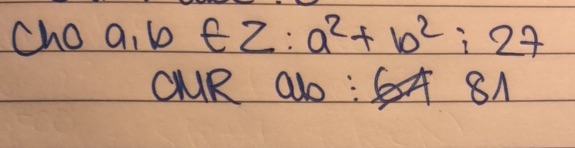 Cho a,b ∈ Z: a² + b² ⋮ 27
CMR ab ⋮ 81